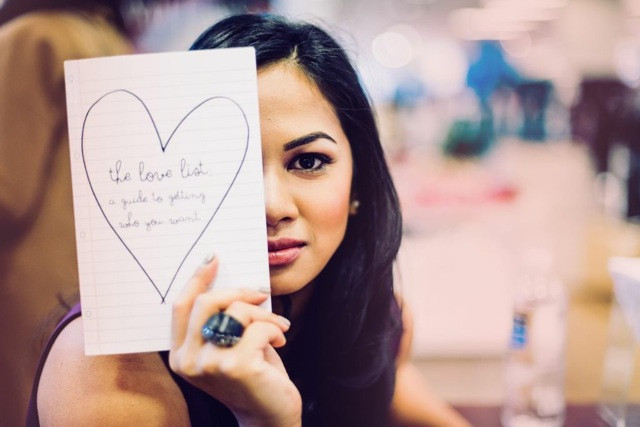 the love list:
a guide to getting
who you want